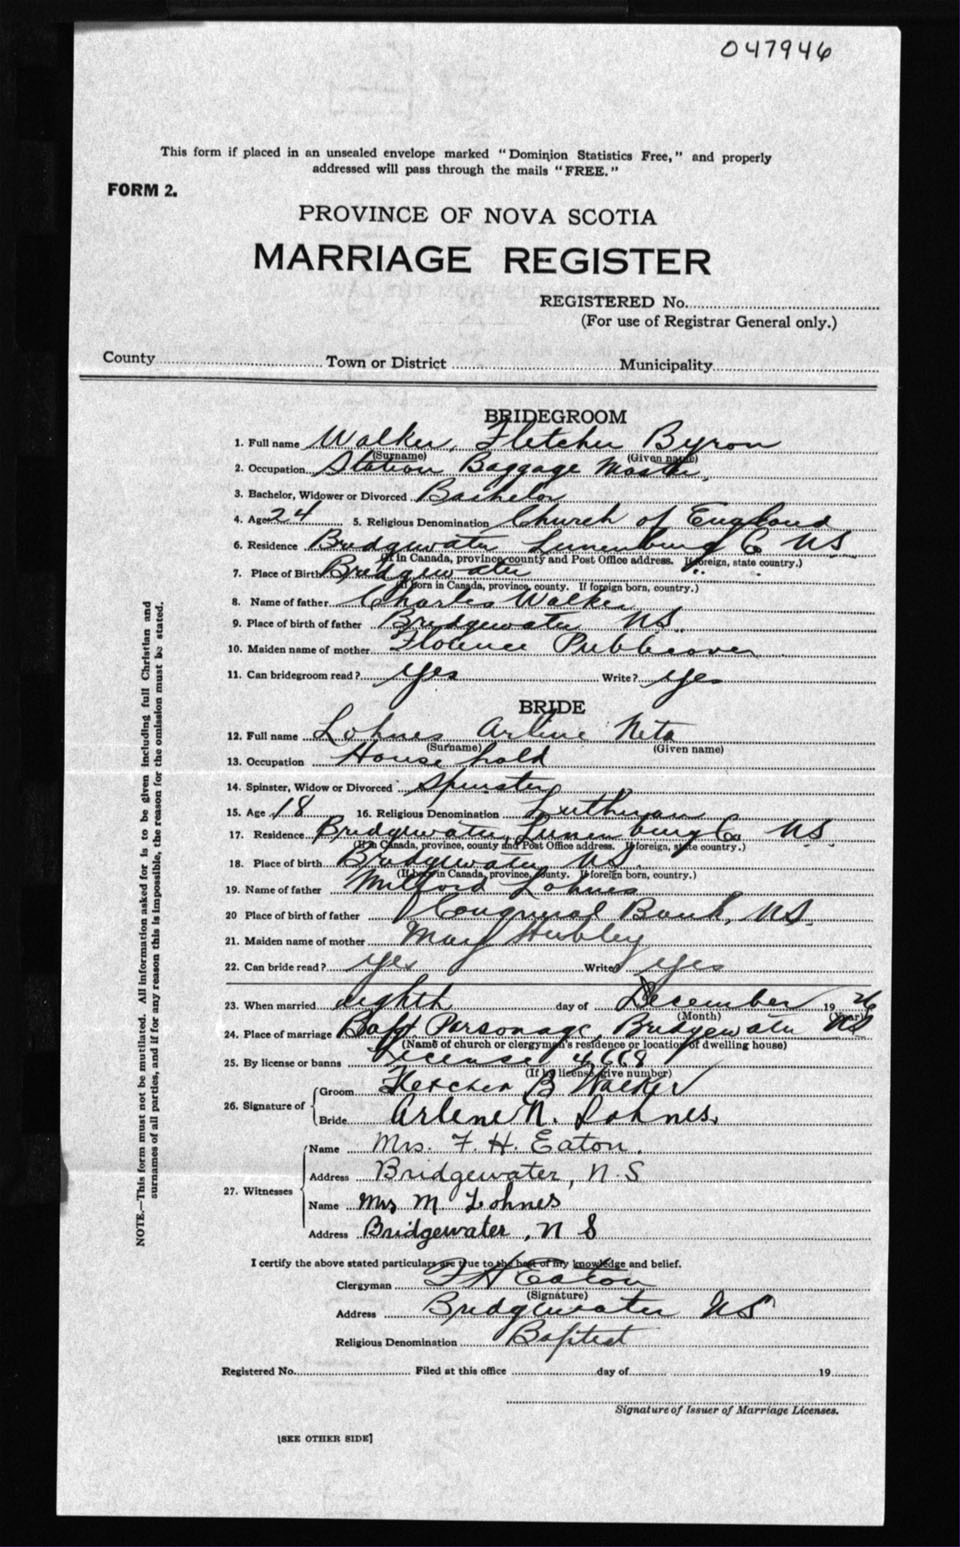 047946
This form if placed in an unsealed envelope marked "Dominion Statistics Free," and properly
addressed will pass through the mails "FREE."
FORM 2.
PROVINCE OF NOVA SCOTIA
MARRIAGE REGISTER
REGISTERED No.
(For use of Registrar General only.)
County Town or District Municipality
BRIDEGROOM
1. Full name Walker, Fletcher Byron
(Surname) (Given name)
2. Occupation Station Baggage Master
3. Bachelor, Widower or Divorced Bachelor
4. Age 24 5. Religious Denomination Church of England
6. Residence Bridgewater Lunenburg Co NS
(If in Canada, province, county and Post Office address. If foreign, state country.)
7. Place of Birth Bridgewater
(If born in Canada, province, county. If foreign born, country.)
8. Name of father Charles Walker
9. Place of birth of father Bridgewater NS.
10. Maiden name of mother Florence
11. Can bridegroom read? yes Write? yes
BRIDE
12. Full name Lohnes Arlene Neta
(Surname) (Given name)
13. Occupation House hold
14. Spinster, Widow or Divorced Spinster
15. Age 18 16. Religious Denomination Lutheran
17. Residence Bridgewater, Lunenburg Co NS
(If in Canada, province, county and Post Office address. If foreign, state country.)
18. Place of birth Bridgewater NS
(If born in Canada, province, county. If foreign born, country.)
19. Name of father Milford Lohnes
20 Place of birth of father Conquerall Bank, NS.
21. Maiden name of mother May Hubley
22. Can bride read? yes Write? yes
23. When married eighth day of December 19 26
(Month) (Year)
24. Place of marriage Bapt Parsonage, Bridgewater NS
(Name of church or clergyman's residence or location of dwelling house)
25. By license or banns License 4668
(If by license, give number)
26. Signature of Groom Fletcher B Walker
Bride Arlene N. Lohnes.
27. Witnesses Name Mrs. F. H. Eaton.
Address Bridgewater, N.S
Name Mrs M Lohnes
Address Bridgewater, N S
I certify the above stated particulars are true to the best of my knowledge and belief.
Clergyman F H Eaton
(Signature)
Address Bridgewater NS
Religious Denomination Baptist
Registered No. Filed at this office day of 19
Signature of Issuer of Marriage Licenses.
[SEE OTHER SIDE]
NOTE.—This form must not be mutilated. All information asked for is to be given including full Christian and
surnames of all parties, and if for any reason this is impossible, the reason for the omission must be stated.